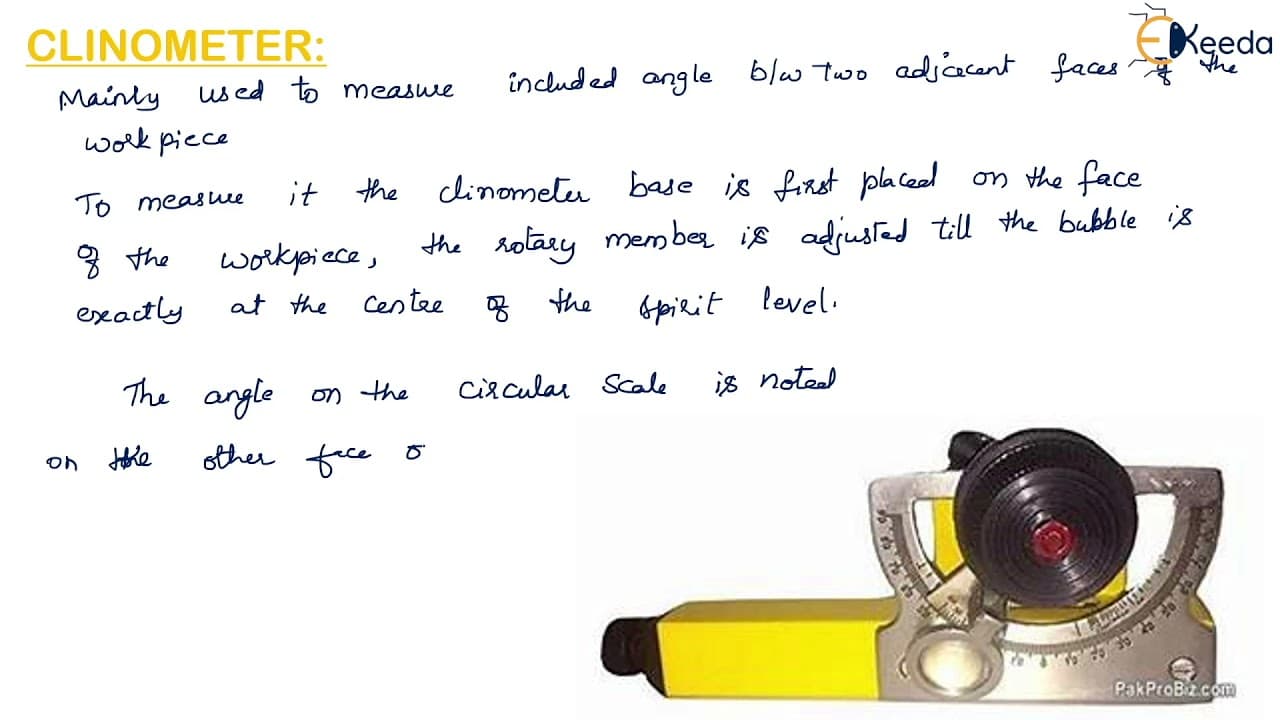 CLINOMETER:
EKeeda
Mainly used to measure included angle b/w two adjacent faces of the
workpiece
To measure it the clinometer base is first placed on the face
of the workpiece, the rotary member is adjusted till the bubble is
exactly at the centre of the spirit level.
The angle on the circular scale is noted
on the other face o
10 0 10 20 30 40 50
PakProBiz.com